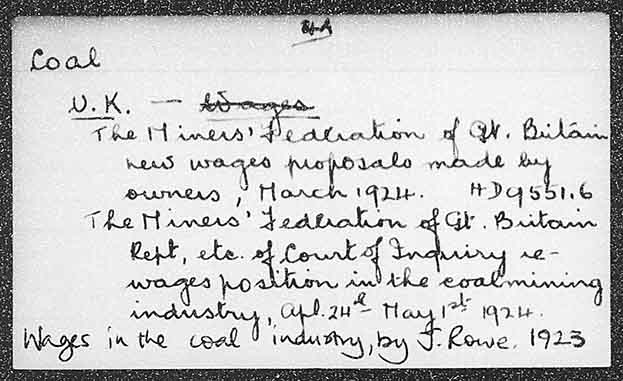 Coal
U.K. — Wages
The Miners' Federation of Gt. Britain
new wages proposals made by
owners, March 1924. HD9551.6
The Miners' Federation of Gt. Britain
Rept, etc. of Court of Inquiry re-
wages position in the coalmining
industry, Apl. 24th - May 1st 1924.
Wages in the coal industry, by J. Rowe. 1923